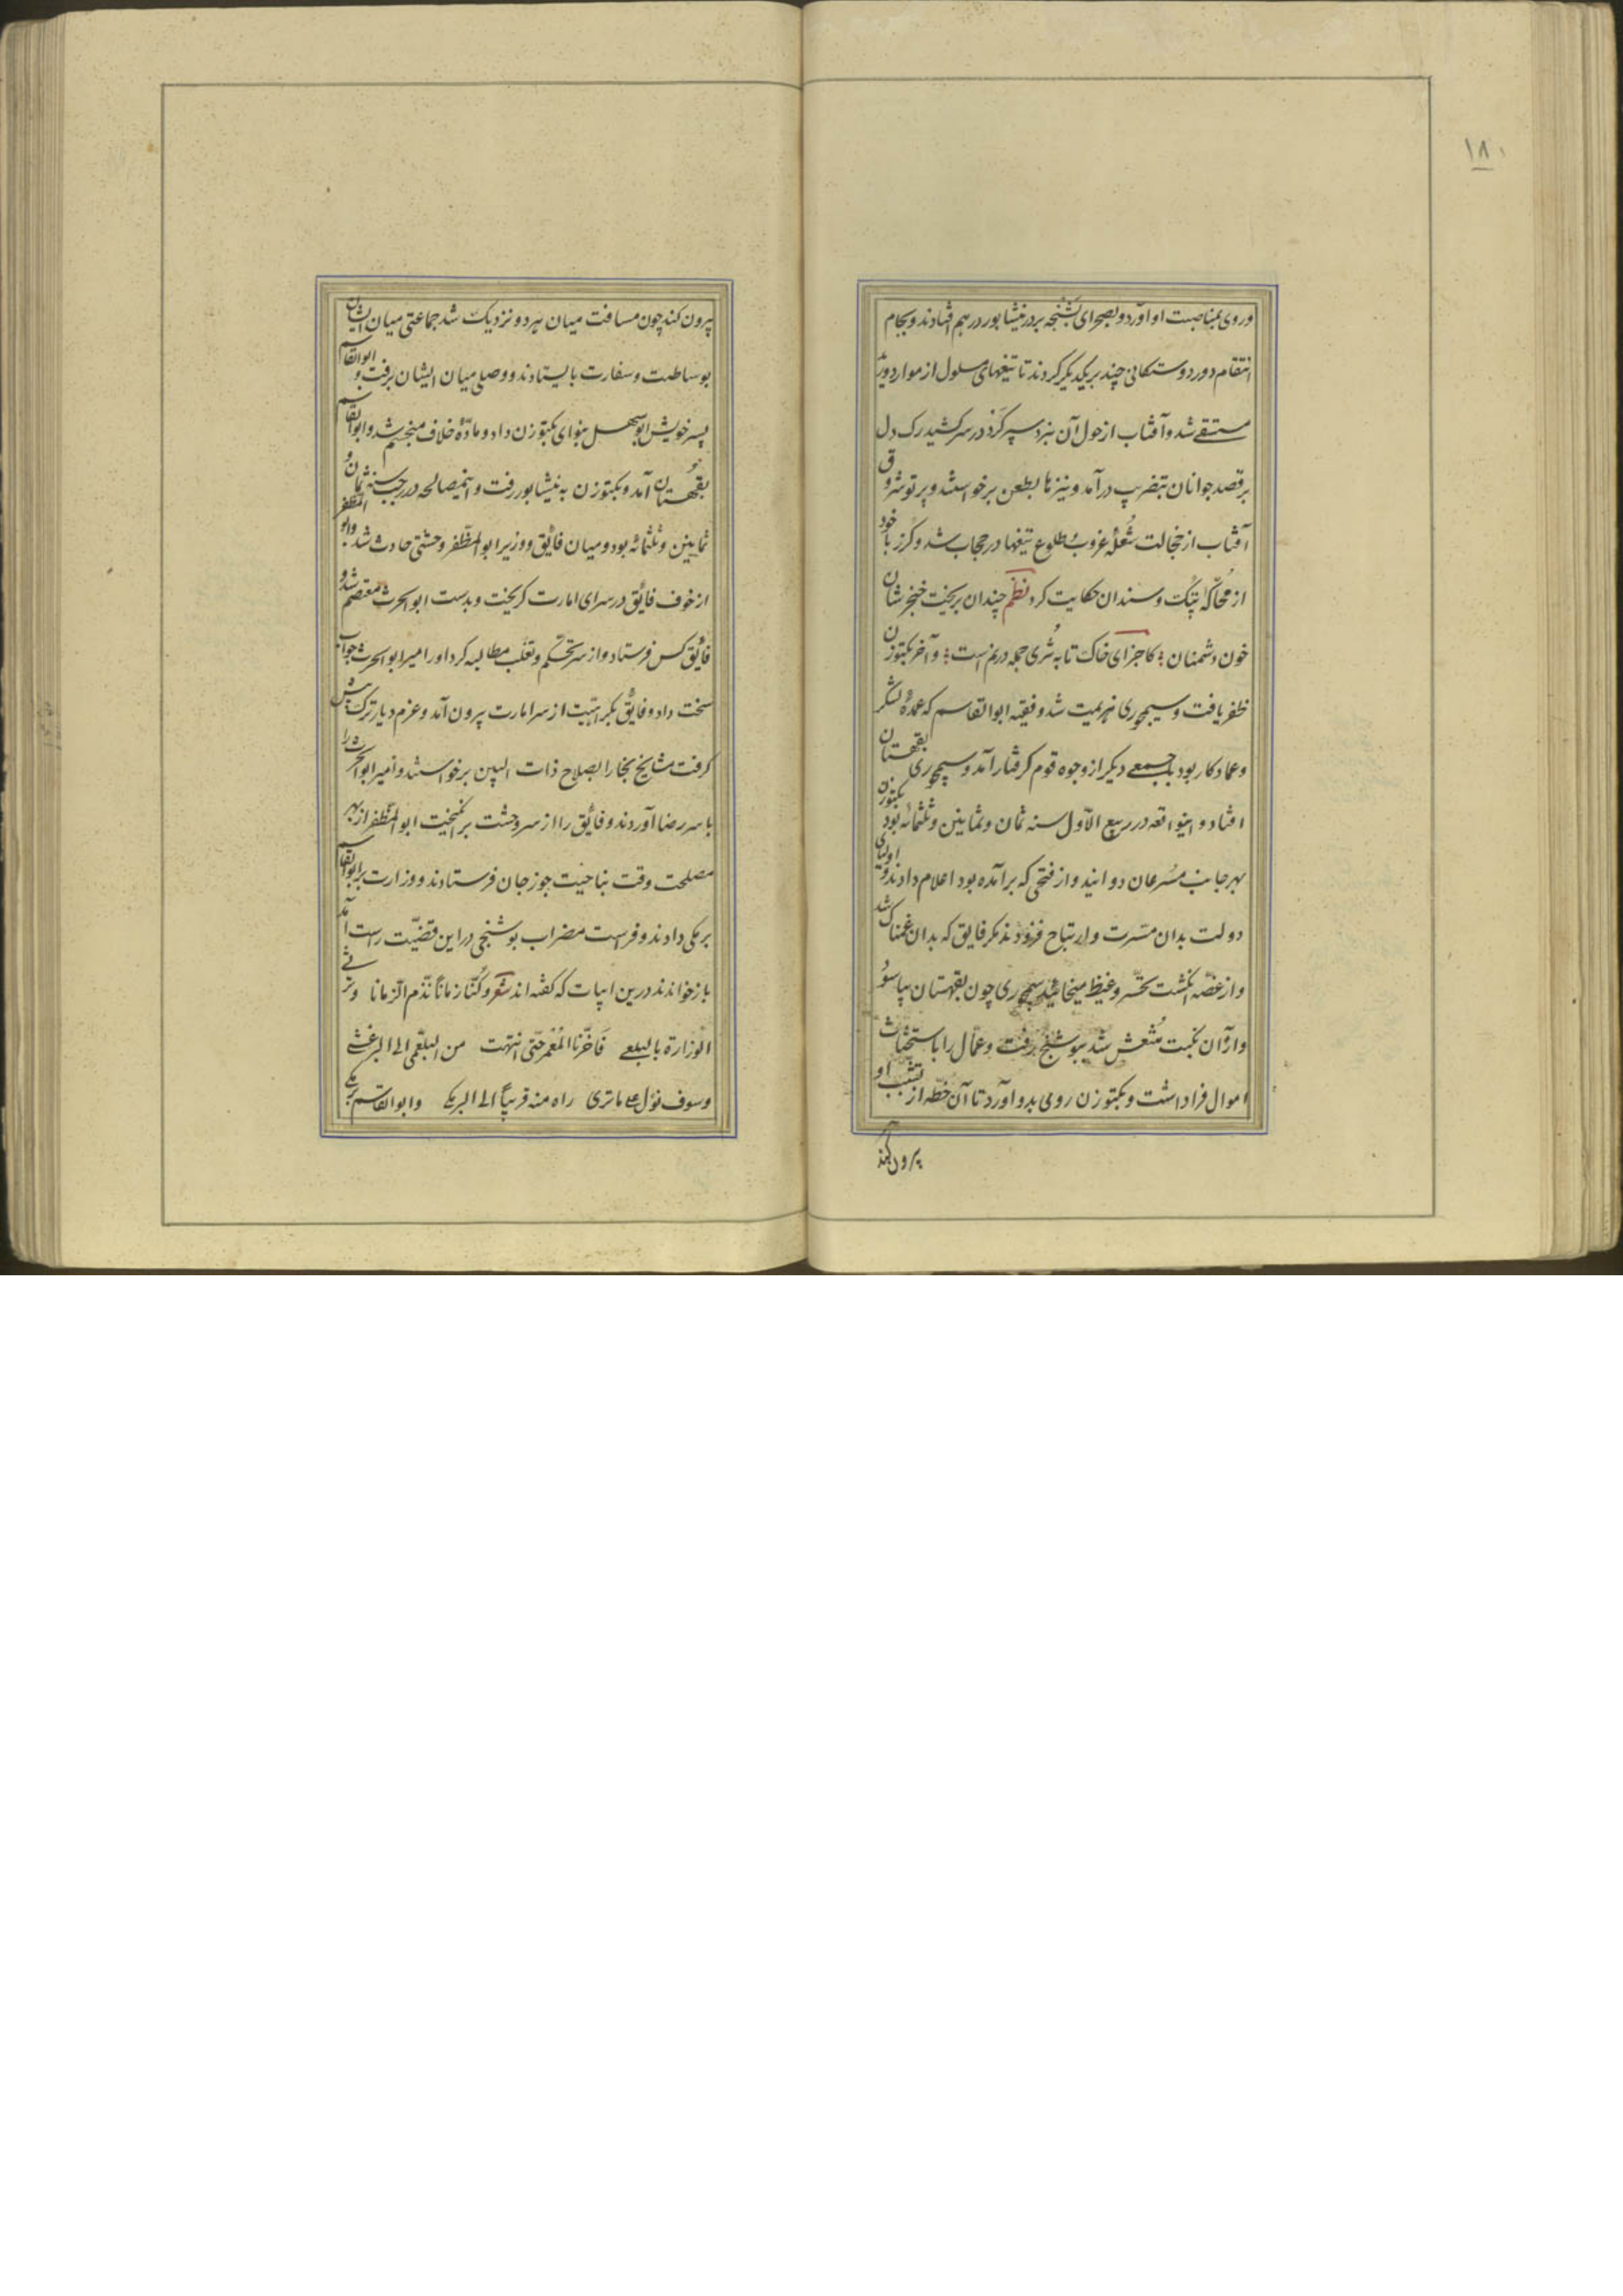 ۱۸۰
وروی بمناصبت او آورد و بصحرای بشنجه بر در نیشابور در هم افتادند و بجام
انتقام دور دوستکانی چند بر یکدیگر کردند تا تیغهای مسلول از موارد ورید
مستقی شد و آفتاب از هول آن نبرد سپر کرد در سر کشید رک دل
بر قصد جوانان بتضریب درآمد و نیزها بطعن برخواستند و پرتو شروق
آفتاب از خجالت شعلهٔ غروب طلوع تیغها در حجاب شد و کرز با خود
از محاکهٔ پتک و سندان حکایت کرد نظم چندان بریخت خنجرشان
خون دشمنان کاجزای خاک تا به ثری جمله در نم است و آخر بکتوزن
ظفر یافت و سیمجوری هزیمت شد و فقیه ابوالقاسم که عمدهٔ لشکر
و عماد کار بود با جمعی دیگر از وجوه قوم گرفتار آمد و سیمجوری بقهستان
افتاد و اینواقعه در ربیع الاوّل سنه ثمان و ثمانین و ثلثمائه بود بکتوزن
بهر جانب مسرعان دوانید و از فتحی که برآمده بود اعلام داد و اولیای
دولت بدان مسّرت و ارتیاح فزودند مکر فایق که بدان غمناک شد
و از غصّه انگشت تحسّر و غیظ میخائید سیمجوری چون بقهستان بیاسود
و از آن نکبت منتعش شد ببوشنج رفت و عمّال را باستحثاث
اموال فرا داشت و بکتوزن روی بدو آورد تا آن خطّه از تشبّث او
پرون کند
پرون کند چون مسافت میان هر دو نزدیک شد جماعتی میان ایشان
بوساطت و سفارت بایستادند و وصلی میان ایشان برفت و ابوالقاسم
پسر خویش ابوسهل بنوای بکتوزن داد و مادّهٔ خلاف منجسم شد و ابوالقاسم
بقهستان آمد و بکتوزن به نیشابور رفت و اینمصالحه در رجب سنه ثمان و
ثمانین و ثلثمائه بود و میان فائق و وزیر ابو المظّفر وحشتی حادث شد و ابو المظفر
از خوف فائق در سرای امارت کریخت و بدست ابوالحرث معتصم شد و
فائق کس فرستاد و از سر تحکّم و تغلّب مطالبه کرد او را امیر ابوالحرث جواب
سخت داد و فایق بکراهّیت از سرا مارت پرون آمد و عزم دیار ترک پیش
کرفت مشایخ بخارا بصلاح ذات البین برخواستند و امیر ابوالحرث را
با سر رضا آوردند و فائق را از سر وحشت برانگیخت ابوالمظّفر از بهر
مصلحت وقت بناحیت جوزجان فرستادند و وزارت بر ابوالقاسم
برمکی دادند و فراست مضراب بوشنجی در این قضیّت راست آمد
باز خواندند درین ابیات که گفته اند شعر و کُنّا زماناً نذّم الزمانا و نرثی
الوزارة بالبلعمی فَاخّرنا العُمر حتّی انتهت من البلعّمی الی البرغشی
و سوف نؤل علی ماتری راه منه قریباً الی البرمکی و ابوالقاسم برمکی